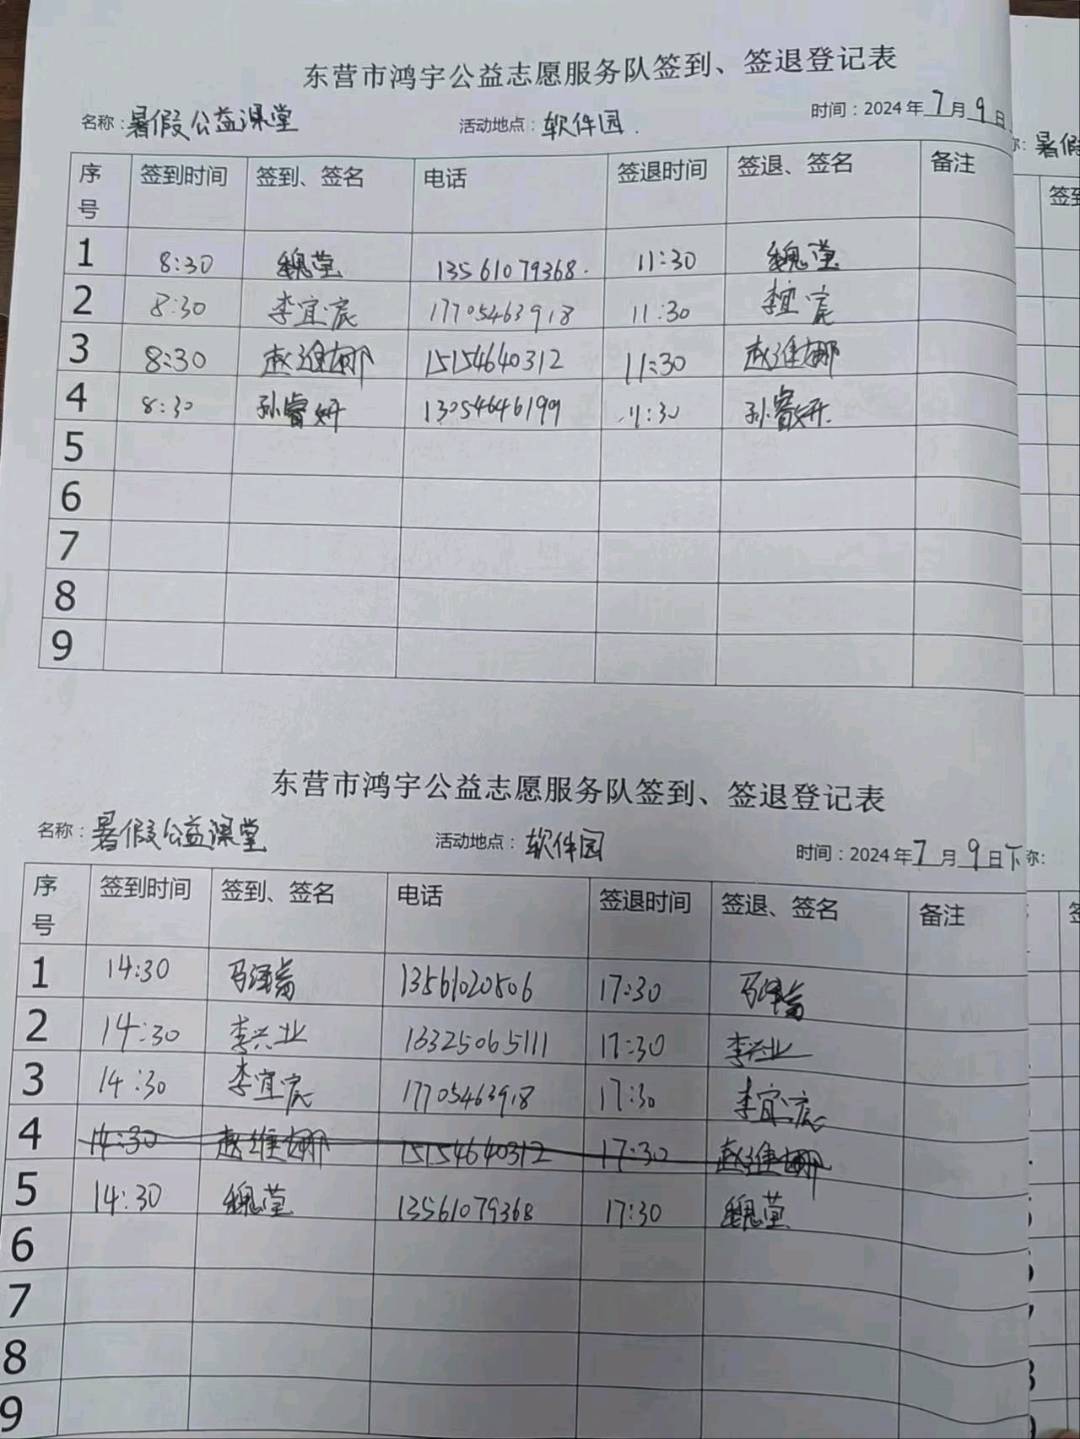 东营市鸿宇公益志愿服务队签到、签退登记表
名称：暑假公益课堂 活动地点：软件园. 时间：2024年7月9日
序号 签到时间 签到、签名 电话 签退时间 签退、签名 备注
1 8:30 魏莹 13561079368. 11:30 魏莹
2 8:30 李宜宸 17705463918 11:30 李宜宸
3 8:30 赵维娜 15154640312 11:30 赵维娜
4 8:30 孙睿妍 13054646199 11:30 孙睿妍
5
6
7
8
9
东营市鸿宇公益志愿服务队签到、签退登记表
名称：暑假公益课堂 活动地点：软件园 时间：2024年7月9日下
序号 签到时间 签到、签名 电话 签退时间 签退、签名 备注
1 14:30 马泽 13561020506 17:30 马泽
2 14:30 李兴业 16325065111 17:30 李兴业
3 14:30 李宜宸 17705463918 17:30 李宜宸
4 14:30 赵维娜 15154640312 17:30 赵维娜
5 14:30 魏莹 13561079368 17:30 魏莹
6
7
8
9